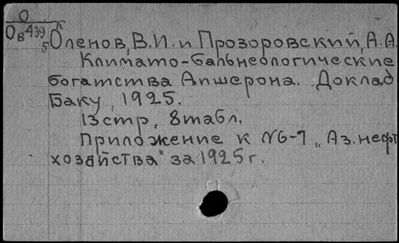 О
Ов439 к
5
Оленов, В.И. и Прозоровский, А.А.
Климато-бальнеологические
богатства Апшерона. Доклад
Баку, 1925.
13стр, 8табл.
Приложение к №6-7 „Аз.нефт
хозяйства" за 1925г.